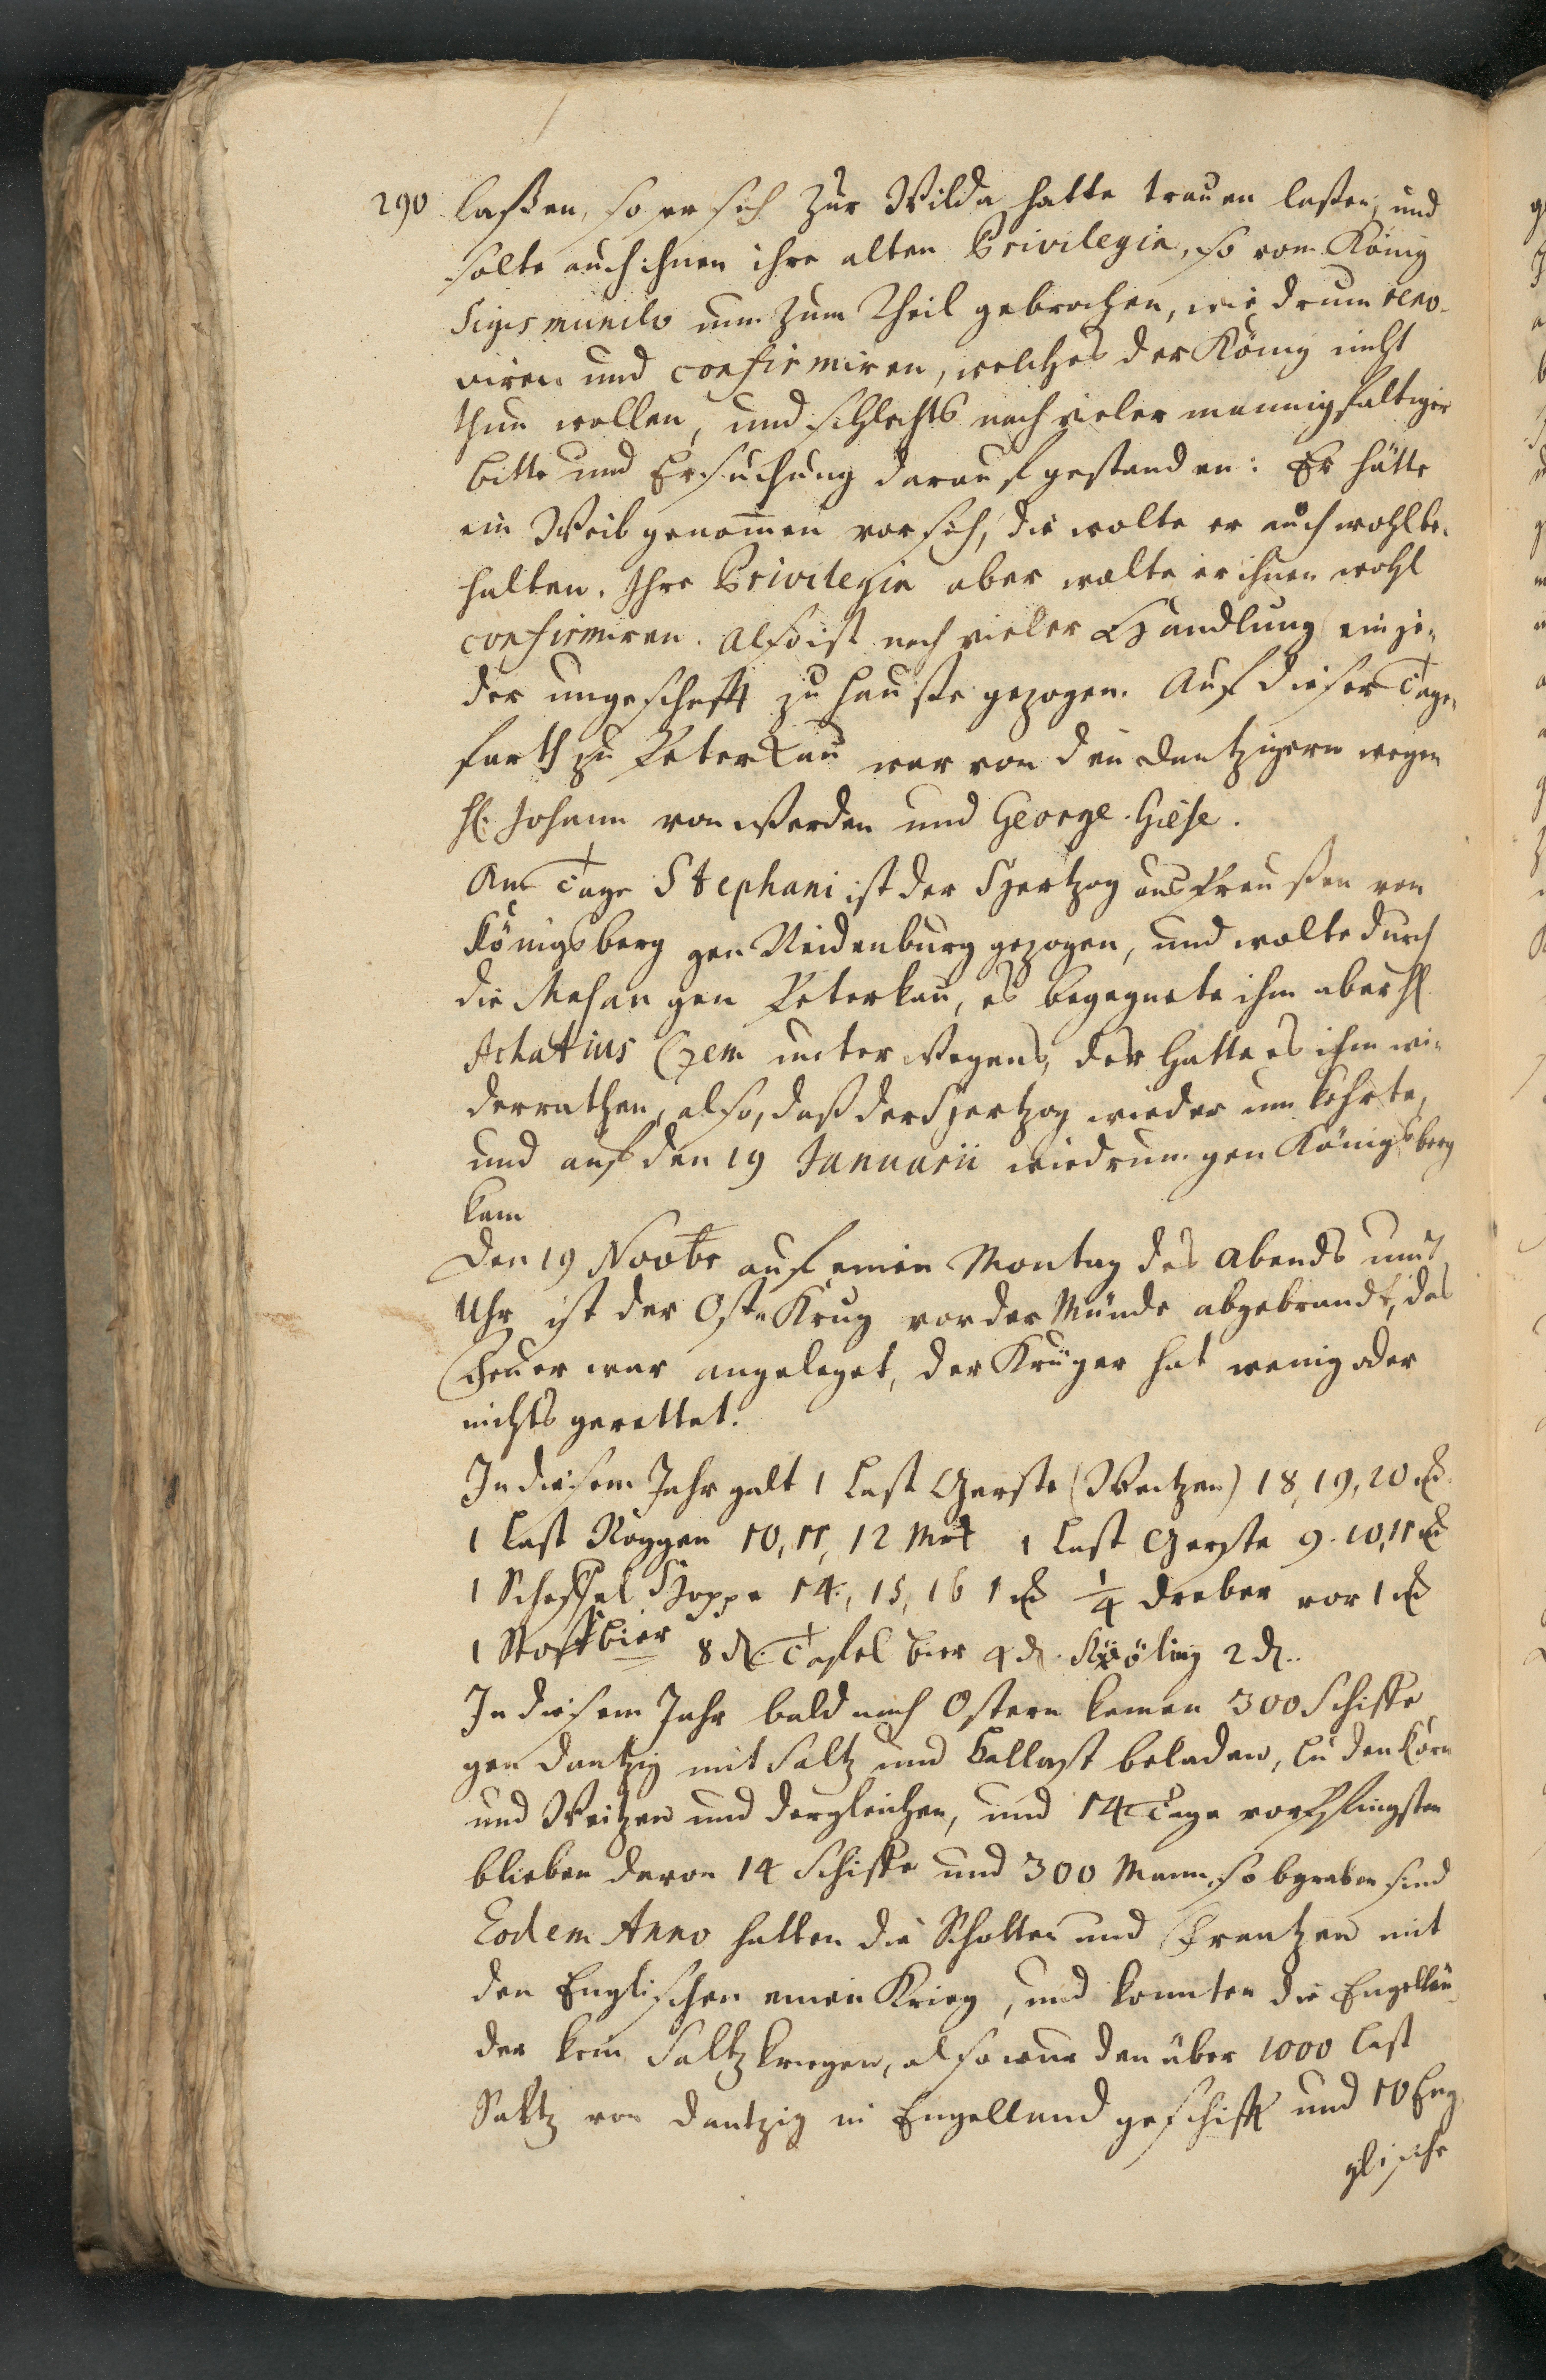 290 laßen, so er sich zur Wilda hatte trauen laßen, und
solte auch ihnen ihre alten Privilegia, so vom König
Sigismundo nun zum Theil gebrochen, wiedrum reno-
viren und confirmiren, welches der König nicht
thun wollen, und schlechts nach vieler mannigfaltiger
bitte und Ersuchung darauf gestanden: Er hätte
ein Weib genommen vor sich, die wolte er auch wohl be-
halten. Ihre Privilegia aber wolte er ihnen wohl
confirmiren. Also ist nach vieler Handlung ein je-
der ungeschafft zu Hause gezogen. Auf dieser Tage-
farth zu Peterkau war von den Dantzigern wegen
H. Johann von Werden und George Giese.
Am Tage Stephani ist der Hertzog aus Preußen von
Königsberg gen Neidenburg gezogen, und wolte durch
die Masau gen Peterkau, es begegnete ihm aber H
Achatius Czem unterwegens, der hatte es ihm wi-
derrathen, also, daß der Hertzog wieder um kehrte,
und auf den 19 Januarii wiedrum gen Königsberg
kam
Den 19 Novbr auf einen Montag des Abends um 7
Uhr ist der Ost Krug vor der Münde abgebrandt, das
Feuer war angeleget, der Krüger hat wenig oder
nichts gerettet.
In diesem Jahr galt 1 Last Gerste (Weitzen) 18, 19, 20
1 Last Roggen 10, 11, 12 Mrk 1 Last Gerste 9. 10, 11
1 Scheffel Hoppe 14, 15, 16 1 ¼ Dreber vor 1
1 Stoff bier 8 d. Tafel bier 4 d. 2 d.
In diesem Jahr bald nach Ostern kamen 300 Schiffe
gen Dantzig mit Saltz und Ballast beladen, luden Korn
und Weitzen und dergleichen, und 14 Tage vor Pfingsten
blieben davon 14 Schiffe und 300 Mann, so begraben sind
Eodem Anno hatten die Schotten und Frantzen mit
den Englischen einen Krieg, und konnten die Engellän-
der kein Saltz kriegen, also wurden über 1000 Last
Saltz von Dantzig in Engelland geschifft und 10 Eng-
glische